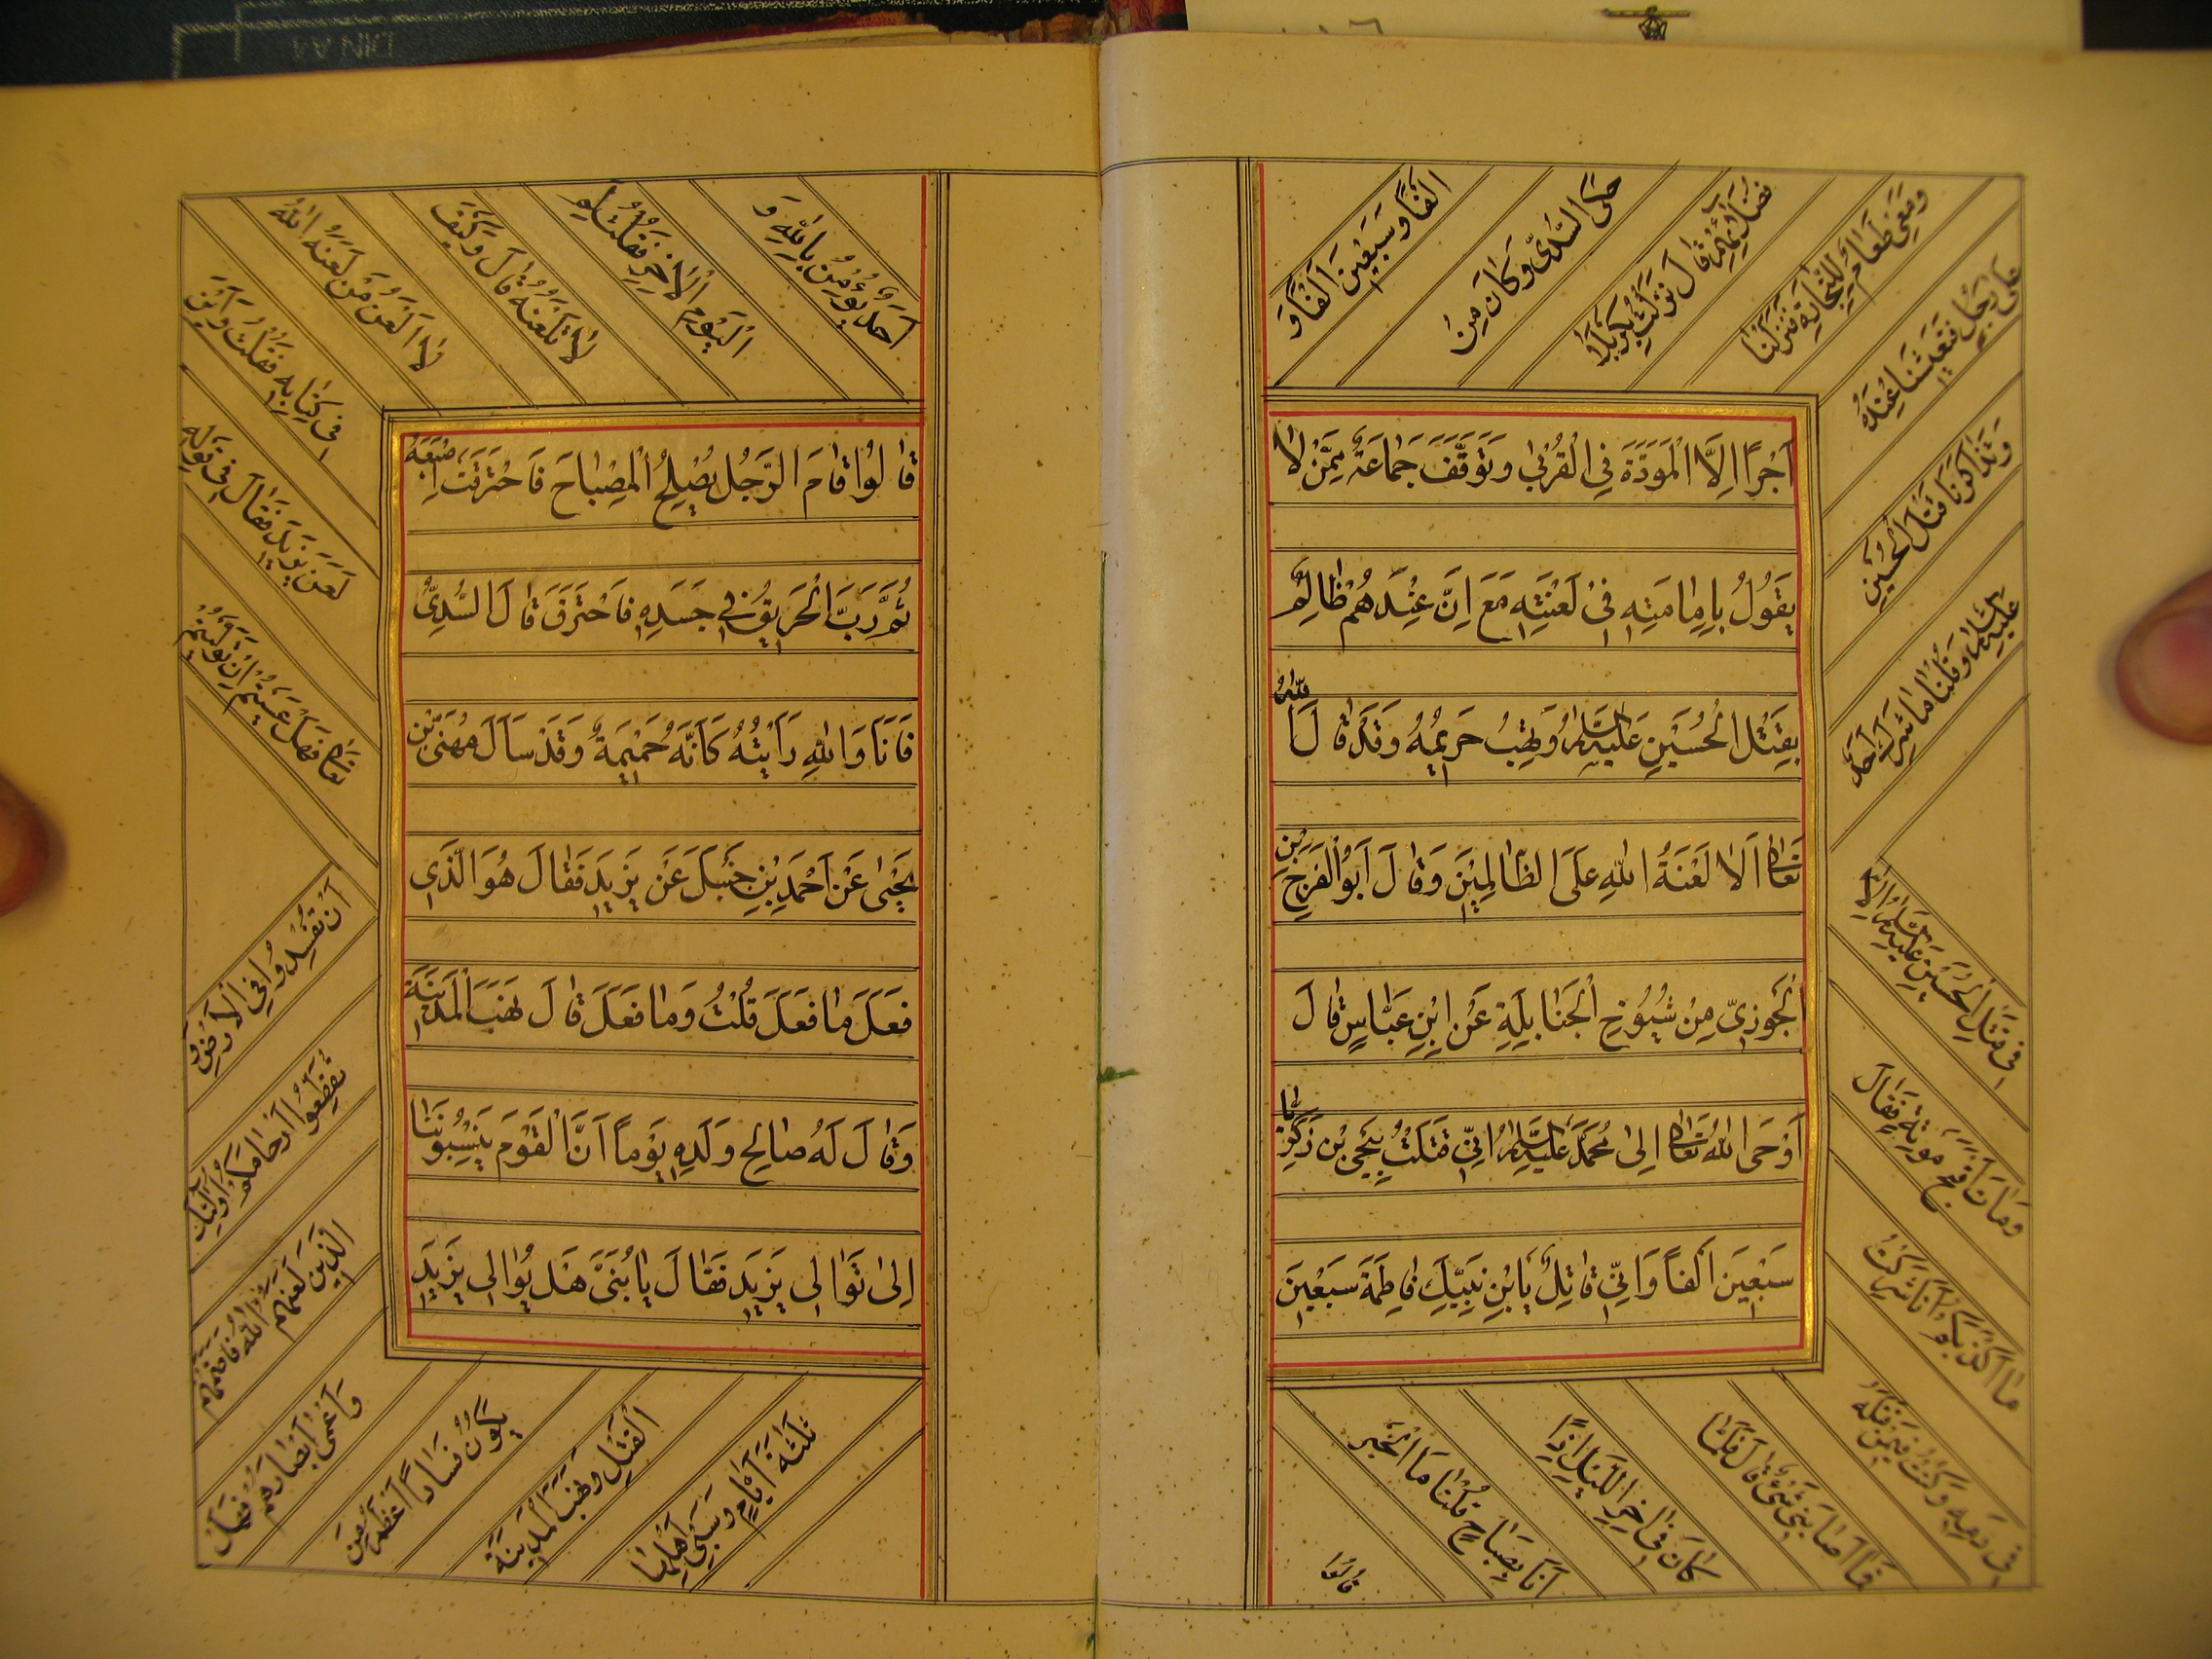 اَجْرًا اِلَّا الْمَوَدَّةَ فِي الْقُرْبٰى وَتَوَقَّفَ جَمَاعَةٌ مِمَّنْ لَا
يَقُولُ بِاِمَامَتِهِ فِي لَعْنَتِهِ مَعَ اِنَّ عِنْدَهُمْ ظَالِمٌ
بِقَتْلِ الْحُسَيْنِ عَلَيْهِ السَّلَامُ وَنَهْبِ حَرِيمِهِ وَقَدْ قَالَ اللّٰهُ
تَعَالٰى اَلَا لَعْنَةُ اللّٰهِ عَلَى الظَّالِمِيْنَ وَقَالَ اَبُو الْفَرَجِ بْنِ
الْجَوْزِيّ مِنْ شُيُوْخِ الْحَنَابِلَةِ عَنِ ابْنِ عَبَّاسٍ قَالَ
اَوْحَى اللّٰهُ تَعَالٰى اِلٰى مُحَمَّدٍ عَلَيْهِ السَّلَامُ اِنِّي قَتَلْتُ بِيَحْيَى بْنِ زَكَرِيَّا
سَبْعِيْنَ اَلْفًا وَاِنِّي قَاتِلٌ بِابْنِ نَبِيِّكِ فَاطِمَةَ سَبْعِيْنَ
اَلْفًا وَسَبْعِيْنَ اَلْفًا وَ
حَكَى السُّدِّيّ وَكَانَ مِنْ
فُضَلَائِهِمْ قَالَ نَزَلْتُ بِكَرْبَلَا
وَمَعِي طَعَامٌ لِلتِّجَارَةِ فَنَزَلْنَا
عَلٰى رَجُلٍ فَتَعَشَّيْنَا عِنْدَهُ
وَتَذَاكَرْنَا قَتْلَ الْحُسَيْنِ
عَلَيْهِ السَّلَامُ وَقُلْنَا مَا شَرِكَ اَحَدٌ
فِي قَتْلِ الْحُسَيْنِ عَلَيْهِ السَّلَامُ اِلَّا
وَمَاتَ اَقْبَحَ مَوْتَةٍ فَقَالَ
مَا اَكْذَبَكُمْ اَنَا شَرِكْتُ
فِي دَمِهِ وَكُنْتُ فِيمَنْ قَتَلَهُ
فَمَا اَصَابَنِي شَيْءٌ قَالَ فَلَمَّا
كَانَ فِي اٰخِرِ اللَّيْلِ اِذًا
اَنَا بِصِيَاحٍ قُلْنَا مَا الْخَبَر
قَالُوْا
قَالُوْا قَامَ الرَّجُلُ يُصْلِحُ الْمِصْبَاحَ فَاحْتَرَقَتْ اِصْبَعُهُ
ثُمَّ دَبَّ الْحَرِيقُ فِي جَسَدِهِ فَاحْتَرَقَ قَالَ السُّدِّيُّ
فَاَنَا وَاللّٰهِ رَاَيْتُهُ كَاَنَّهُ حَمِيْمَةٌ وَقَدْ سَاَلَ مُهَنَّى بْنِ
يَحْيٰى عَنْ اَحْمَدَ بْنِ حَنْبَلَ عَنْ يَزِيْدَ فَقَالَ هُوَ الَّذِي
فَعَلَ مَا فَعَلَ قُلْتُ وَمَا فَعَلَ قَالَ نَهَبَ الْمَدِيْنَةَ
وَقَالَ لَهُ صَالِحُ وَلَدِهِ يَوْمًا اَنَّ الْقَوْمَ يَنْسِبُوْنَنَا
اِلٰى تَوَالِي يَزِيْدَ فَقَالَ يَا بُنَيَّ هَلْ يُوَالِي يَزِيْدَ
اَحَدٌ يُؤْمِنُ بِاللّٰهِ وَ
الْيَوْمِ الْاٰخِرِ فَقُلْتُ لِمَ
لَا تَلْعَنُهُ قَالَ وَكَيْفَ
لَا اَلْعَنُ مَنْ لَعَنَهُ اللّٰهُ
فِي كِتَابِهِ فَقُلْتُ وَاَيْنَ
لَعَنَ يَزِيْدَ فَقَالَ فِي قَوْلِهِ
تَعَالٰى فَهَلْ عَسَيْتُمْ اِنْ تَوَلَّيْتُمْ
اَنْ تُفْسِدُوْا فِي الْاَرْضِ وَ
تُقَطِّعُوْا اَرْحَامَكُمْ اُولٰئِكَ
الَّذِيْنَ لَعَنَهُمُ اللّٰهُ فَاَصَمَّهُمْ
وَاَعْمٰى اَبْصَارَهُمْ فَهَلْ
يَكُوْنُ فَسَادًا اَعْظَمُ مِنَ
الْقَتْلِ وَنَهْبَ الْمَدِيْنَةَ
ثَلٰثَةَ اَيَّامٍ وَسَبْيَ اَهْلِهَا